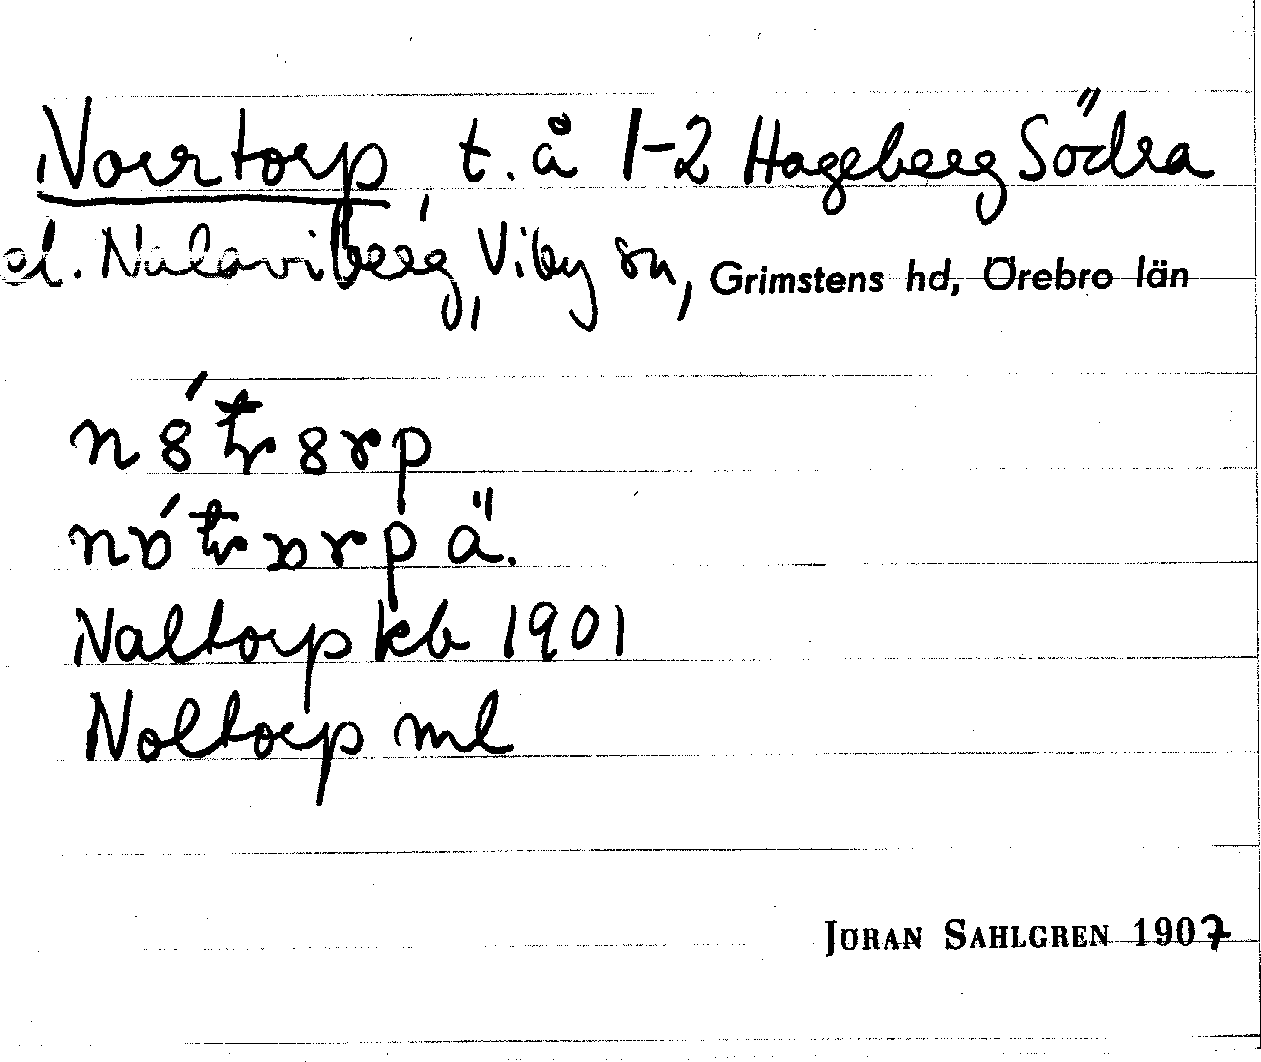 Norrtorp, t. å 1-2 Hageberg Södra
el. Nalaviberg, Viby sn, Grimstens hd, Örebro län
ä.
Naltorp kb 1901
Noltorp ml
JÖRAN SAHLGREN 1907